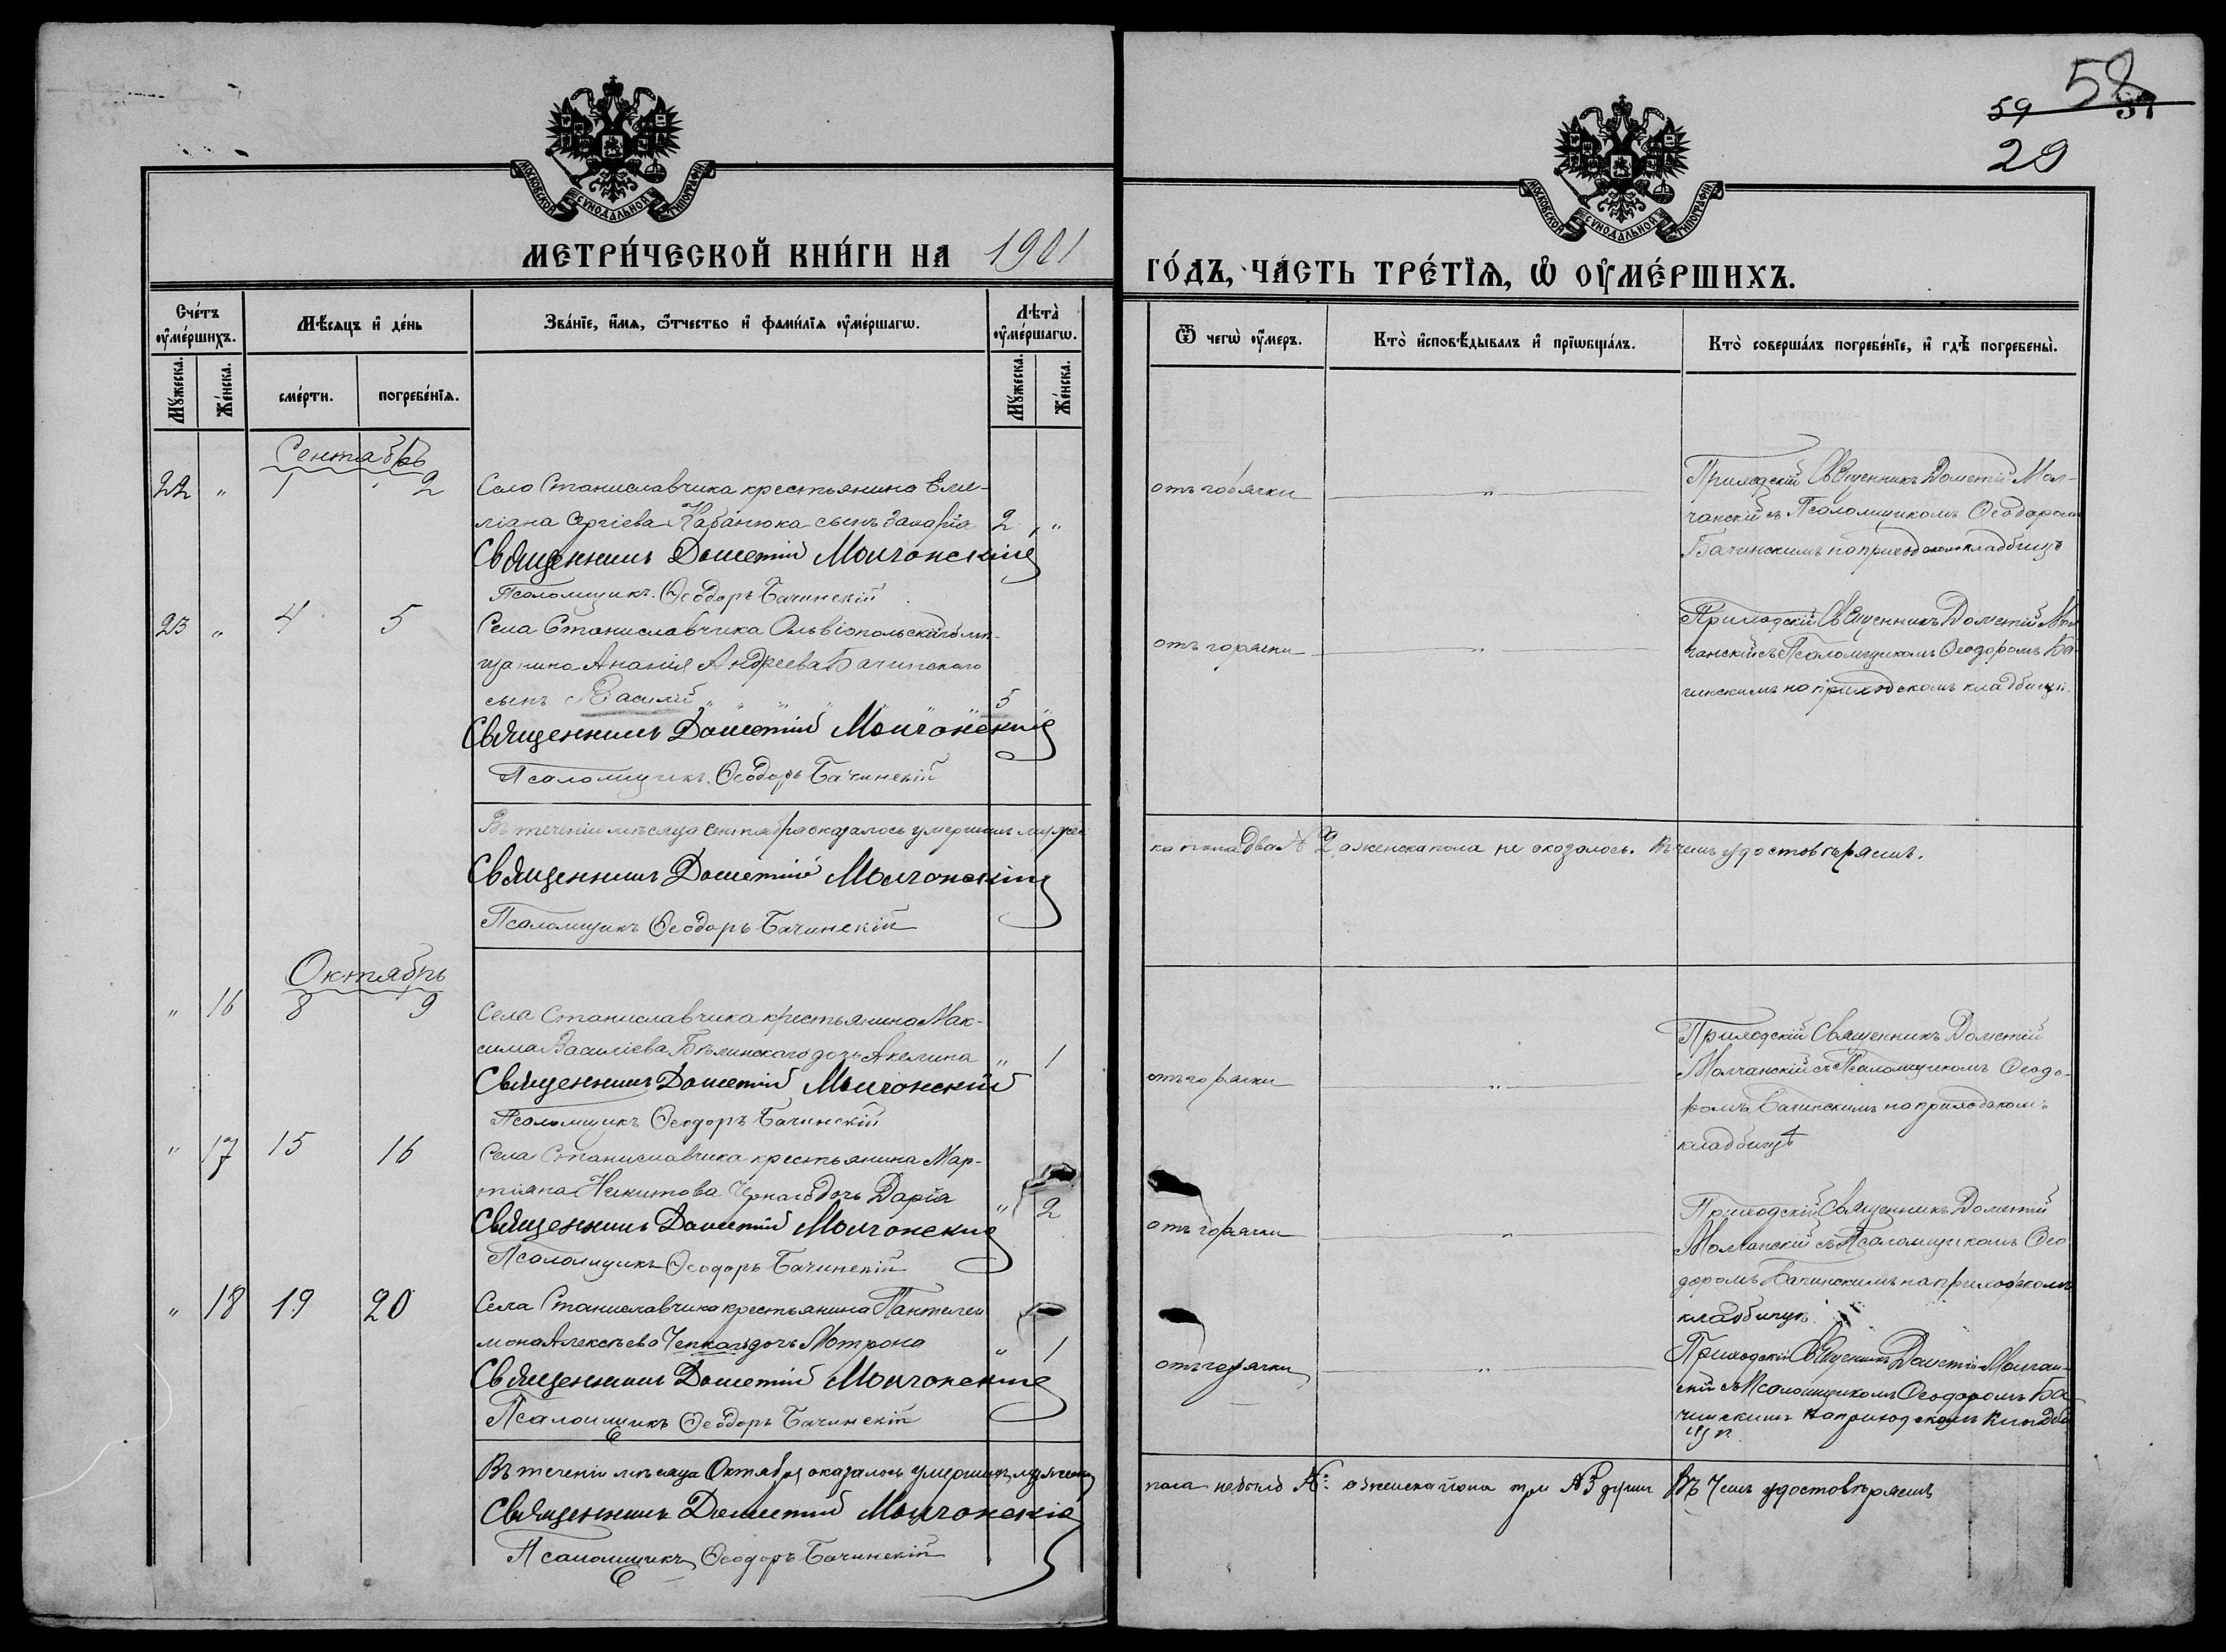 59 58 57
29
МОСКОВСКОЙ СѴНОДАЛЬНОЙ ТИПОГРАФІИ
МОСКОВСКОЙ СѴНОДАЛЬНОЙ ТИПОГРАФІИ
МЕТРИ́ЧЕСКОЙ КНИ́ГИ НА 1901
ГО́ДЪ, ЧА́СТЬ ТРЕ́ТЇѦ, Ѡ҆ ОУ҆МЕ́РШИХЪ.
Сче́тъ оу҆ме́ршихъ.
Мꙋ́жеска.
Же́нска.
Мѣ́сѧцъ и҆ де́нь
сме́рти.
погребе́нїѧ.
Зва́нїе, и҆́мѧ, ѻ҆́тчество и҆ фами́лїѧ оу҆ме́ршагѡ.
Лѣ́та̀ оу҆ме́ршагѡ.
Мꙋ́жеска.
Же́нска.
Ѿ чегѡ̀ оу҆́меръ.
Кто̀ и҆сповѣ́дывалъ и҆ прїѡбща́лъ.
Кто̀ соверша́лъ погребе́нїе, и҆ гдѣ̀ погребены̀.
Сентябрь
22 " 1 2
Село Станиславчика крестьянина Еми-
ліана Сергіева Кабанюка сынъ Захарія 2 "
Священникъ Дометій Молчанскій
Псаломщикъ Ѳеодоръ Бачинскій
отъ горячки "
Приходскій Священникъ Дометій Мол-
чанскій съ Псаломщикомъ Ѳеодоромъ
Бачинскимъ на приходскомъ кладбищѣ
23 " 4 5
Села Станиславчика Ольвіопольскаго мѣ-
щанина Ананія Андреева Бачинскаго
сынъ Василій " " " " 5 "
Священникъ Дометій Молчанскій
Псаломщикъ Ѳеодоръ Бачинскій
отъ горячки "
Приходскій Священникъ Дометій Мол
чанскій съ Псаломщикомъ Ѳеодоромъ Ба-
чинскимъ на приходскомъ кладбищѣ.
Въ теченіи мѣсяца Сентября оказалось умершихъ мужес
ка пола два № 2, а женска пола не оказалось. Въ чемъ удостовѣряемъ.
Священникъ Дометій Молчанскій
Псаломщикъ Ѳеодоръ Бачинскій
Октябрь
" 16 8 9
Села Станиславчика крестьянина Мак-
сима Василіева Бѣлинскаго дочь Акелина " 1
Священникъ Дометій Молчанскій
Псаломщикъ Ѳеодоръ Бачинскій
отъ горячки "
Приходскій Священникъ Дометій
Молчанскій съ Псаломщикомъ Ѳеодо-
ромъ Бачинскимъ на приходскомъ
кладбищѣ
" 17 15 16
Села Станиславчика крестьянина Мар-
тіяна Никитова Чернаго дочь Дарія " 2
Священникъ Дометій Молчанскій
Псаломщикъ Ѳеодоръ Бачинскій
отъ горячки "
Приходскій Священникъ Дометій
Молчанскій съ Псаломщикомъ Ѳео
доромъ Бачинскимъ на приходскомъ
кладбищѣ.
" 18 19 20
Села Станиславчика крестьянина Пантелеи
мона Алексѣева дочь Мотрона " 1
Священникъ Дометій Молчанскій
Псаломщикъ Ѳеодоръ Бачинскій
отъ горячки "
Приходскій Священникъ Дометій Молчан-
скій съ Псаломщикомъ Ѳеодоромъ Ба
чинскимъ на приходскомъ кладби
щѣ
Въ теченіи мѣсяца Октября оказалось умершихъ мужеска
пола небыло №: а женска пола три № 3 души Въ Чемъ удостовѣряемъ
Священникъ Дометій Молчанскій
Псаломщикъ Ѳеодоръ Бачинскій